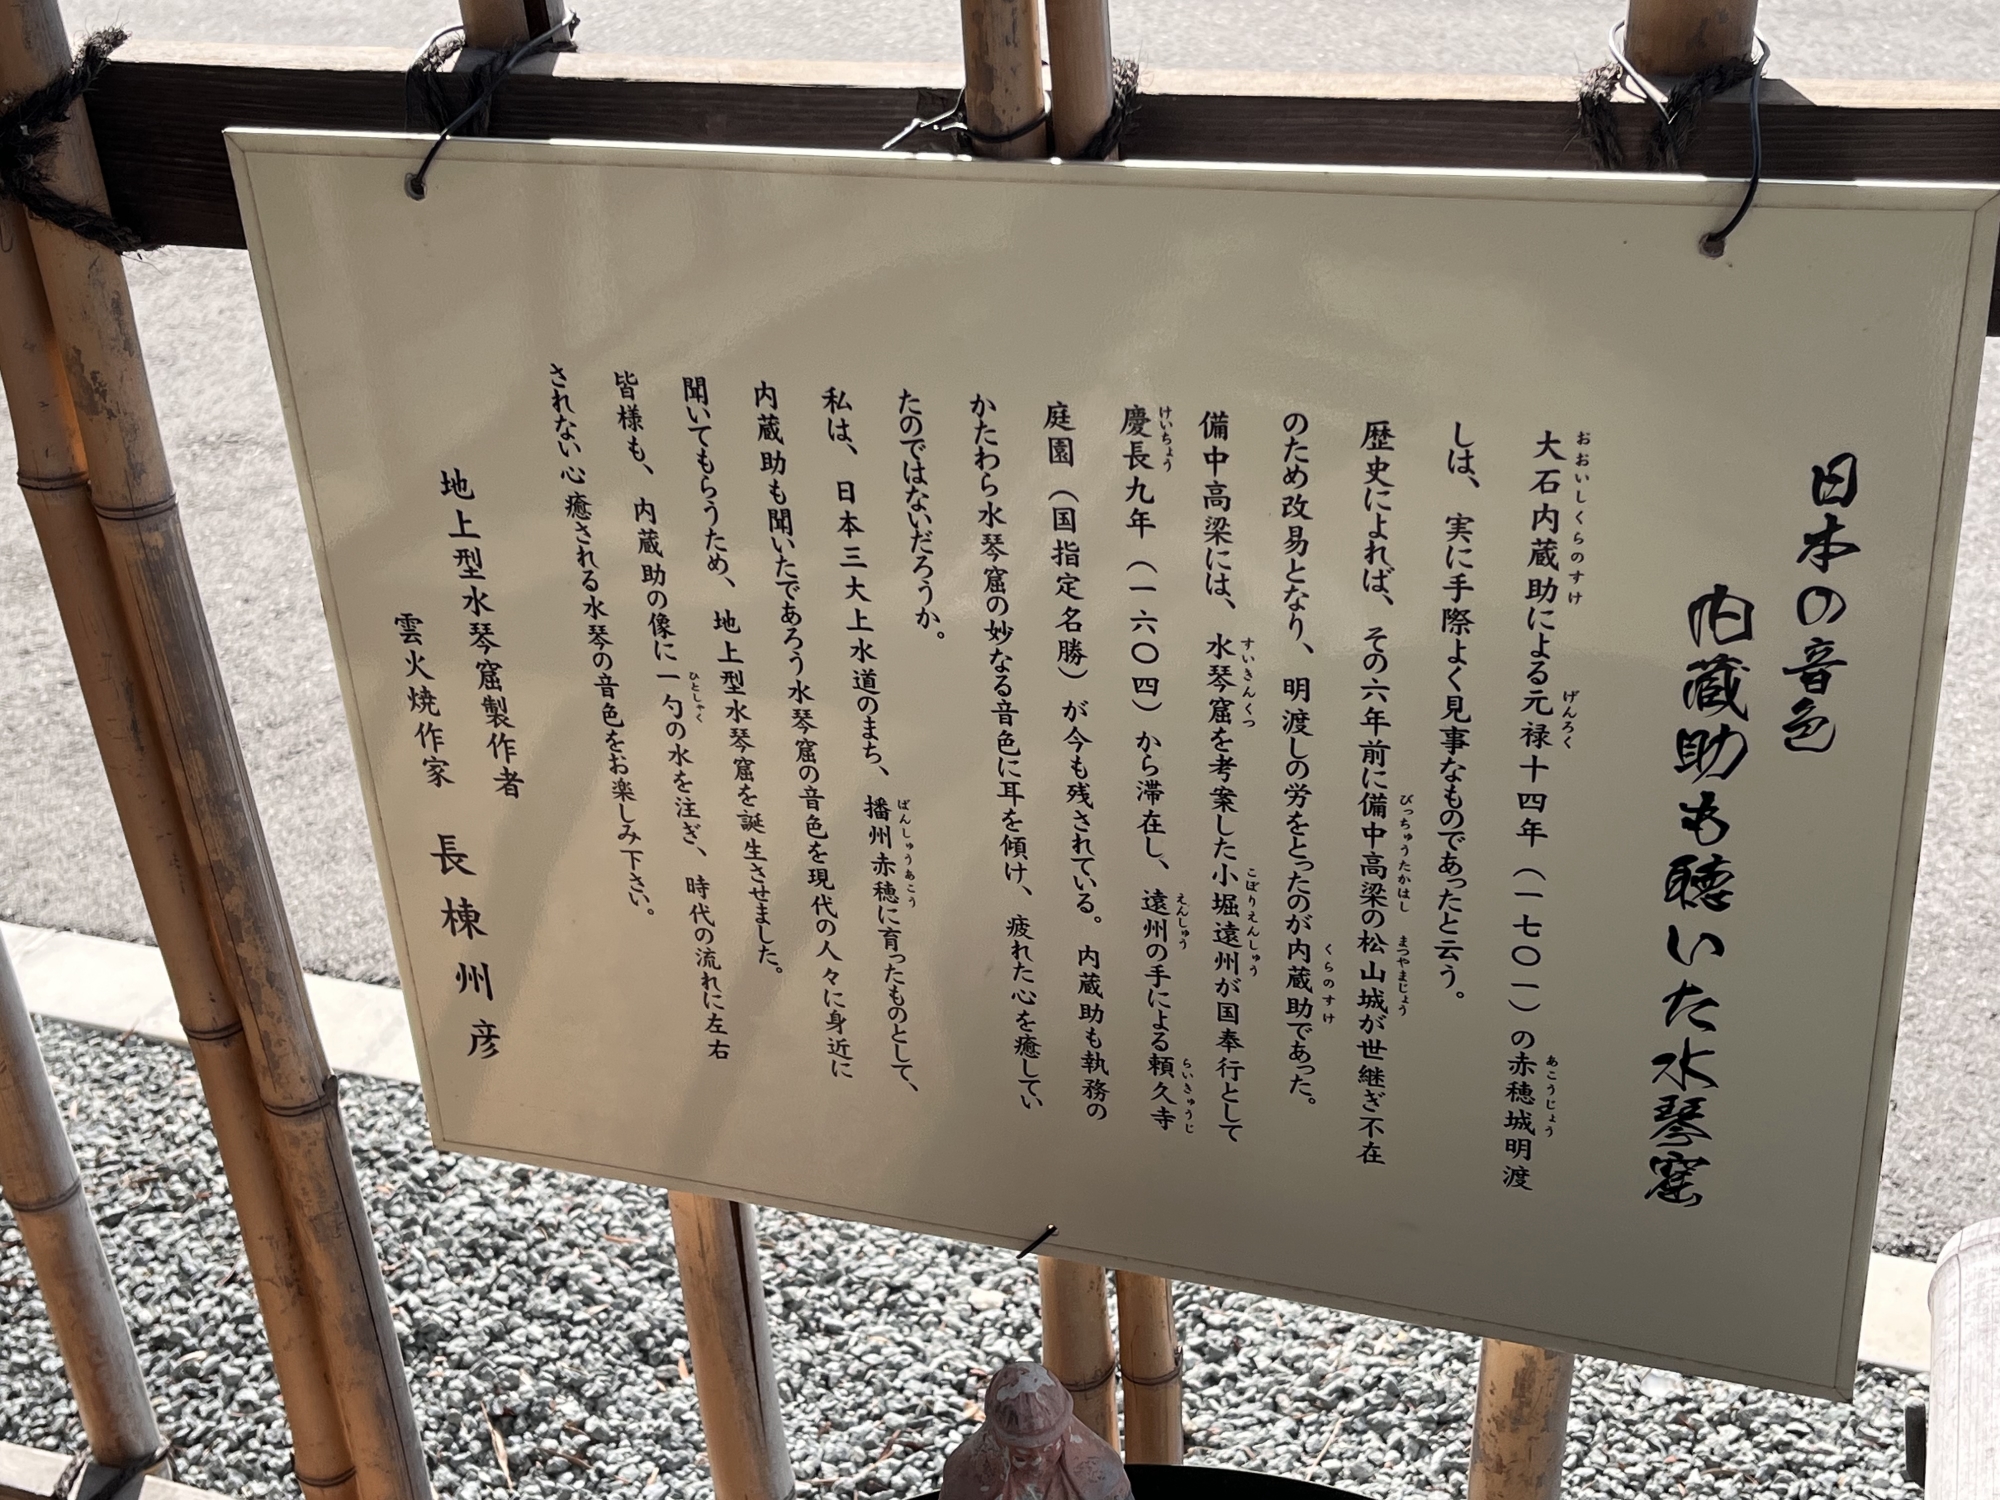 日本の音色
内蔵助も聴いた水琴窟
大石内蔵助による元禄十四年（一七〇一）の赤穂城明渡
おおいしくらのすけ
げんろく
あこうじょう
しは、実に手際よく見事なものであったと云う。
歴史によれば、その六年前に備中高梁の松山城が世継ぎ不在
びっちゅうたかはし
まつやまじょう
のため改易となり、明渡しの労をとったのが内蔵助であった。
くらのすけ
備中高梁には、水琴窟を考案した小堀遠州が国奉行として
すいきんくつ
こぼりえんしゅう
慶長九年（一六〇四）から滞在し、遠州の手による頼久寺
けいちょう
えんしゅう
らいきゅうじ
庭園（国指定名勝）が今も残されている。内蔵助も執務の
かたわら水琴窟の妙なる音色に耳を傾け、疲れた心を癒してい
たのではないだろうか。
私は、日本三大上水道のまち、播州赤穂に育ったものとして、
ばんしゅうあこう
内蔵助も聞いたであろう水琴窟の音色を現代の人々に身近に
聞いてもらうため、地上型水琴窟を誕生させました。
皆様も、内蔵助の像に一勺の水を注ぎ、時代の流れに左右
ひとしゃく
されない心癒される水琴の音色をお楽しみ下さい。
地上型水琴窟製作者
雲火焼作家　長棟州彦